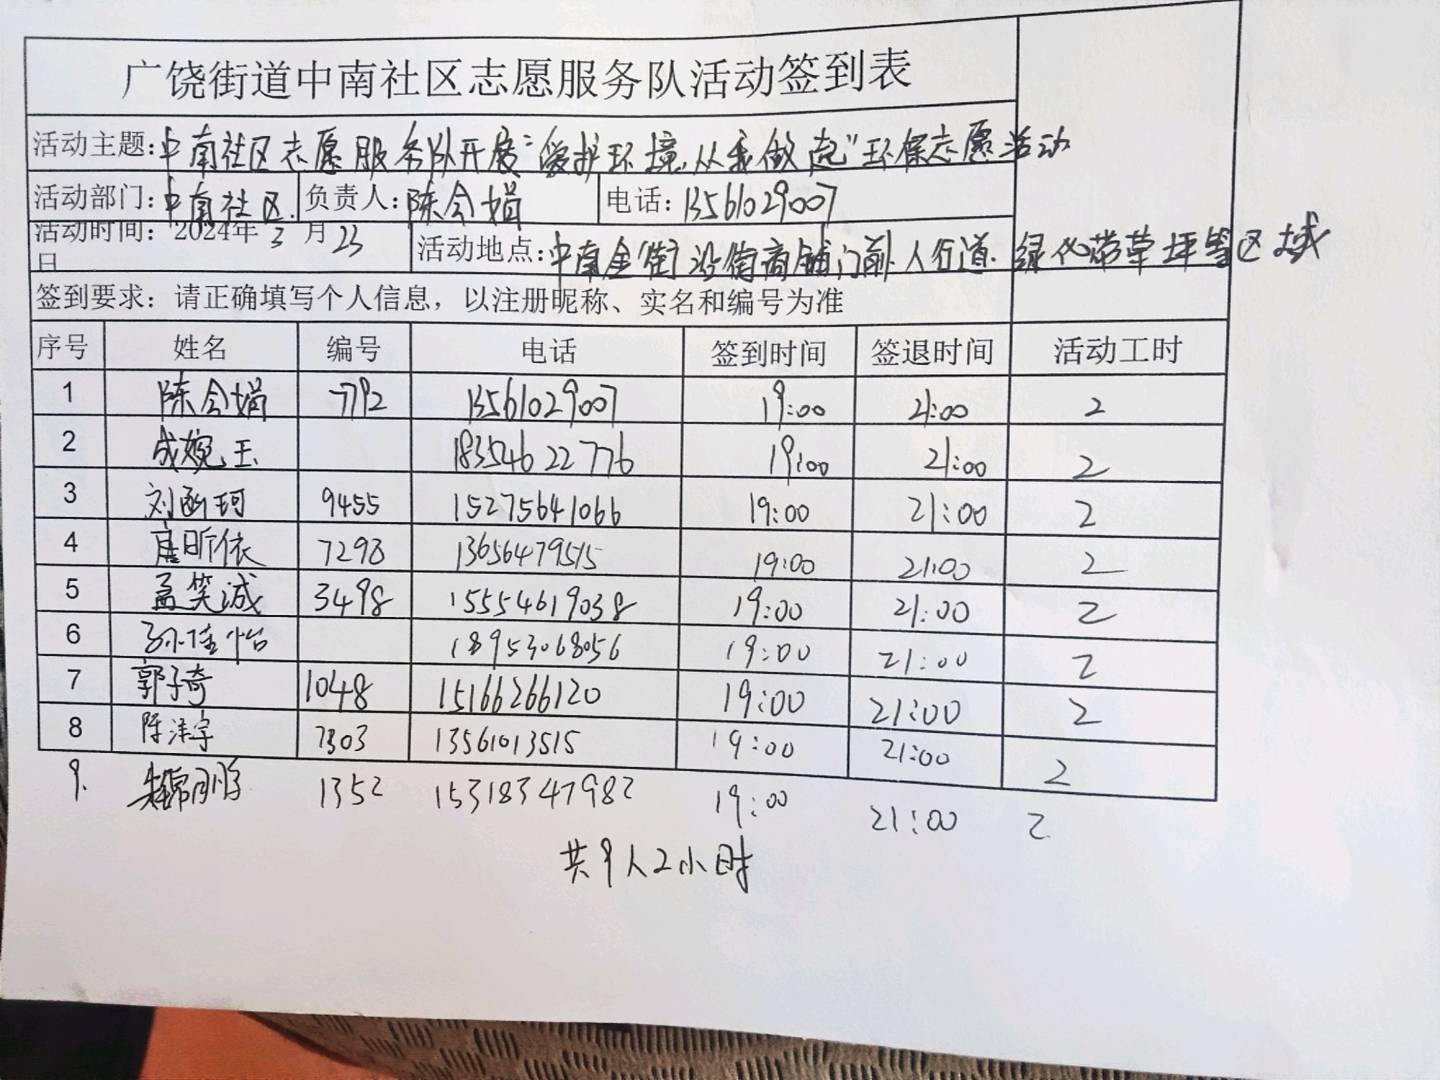 广饶街道中南社区志愿服务队活动签到表
活动主题:中南社区志愿服务队开展“爱护环境,从我做起”环保志愿活动
活动部门:中南社区 负责人:陈会娟 电话:13561029007
活动时间:2024年3月23日 活动地点:中南金街沿街商铺门前人行道、绿化带草坪等区域
签到要求:请正确填写个人信息,以注册昵称、实名和编号为准
序号 姓名 编号 电话 签到时间 签退时间 活动工时
1 陈会娟 7792 13561029007 19:00 21:00 2
2 成婉玉 18354622776 19:00 21:00 2
3 刘函珂 9455 15275641066 19:00 21:00 2
4 昕依 7298 13656479515 19:00 21:00 2
5 孟笑诚 3498 15554619038 19:00 21:00 2
6 孙佳怡 18953068056 19:00 21:00 2
7 郭子奇 1048 15166266120 19:00 21:00 2
8 陈沣宇 7303 13561013515 19:00 21:00 2
9. 1352 15318347982 19:00 21:00 2
共9人2小时